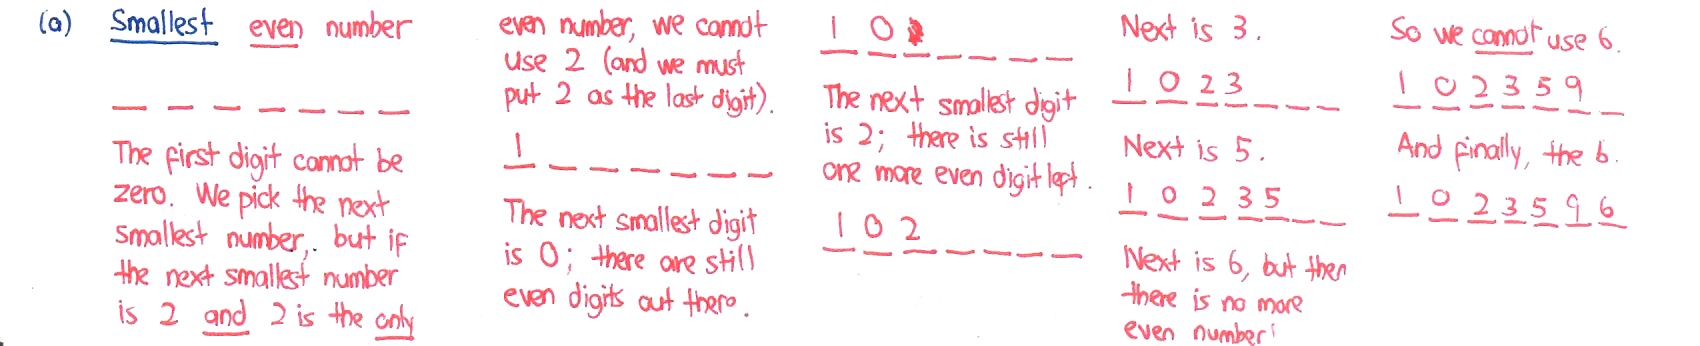 (a) Smallest even number
_ _ _ _ _ _ _
The first digit cannot be
zero. We pick the next
smallest number, but if
the next smallest number
is 2 and 2 is the only
even number, we cannot
use 2 (and we must
put 2 as the last digit).
1 _ _ _ _ _ _
The next smallest digit
is 0; there are still
even digits out there.
1 0 _ _ _ _ _
The next smallest digit
is 2; there is still
one more even digit left.
1 0 2 _ _ _ _
Next is 3.
1 0 2 3 _ _ _
Next is 5.
1 0 2 3 5 _ _
Next is 6, but then
there is no more
even number!
So we cannot use 6.
1 0 2 3 5 9 _
And finally, the 6.
1 0 2 3 5 9 6